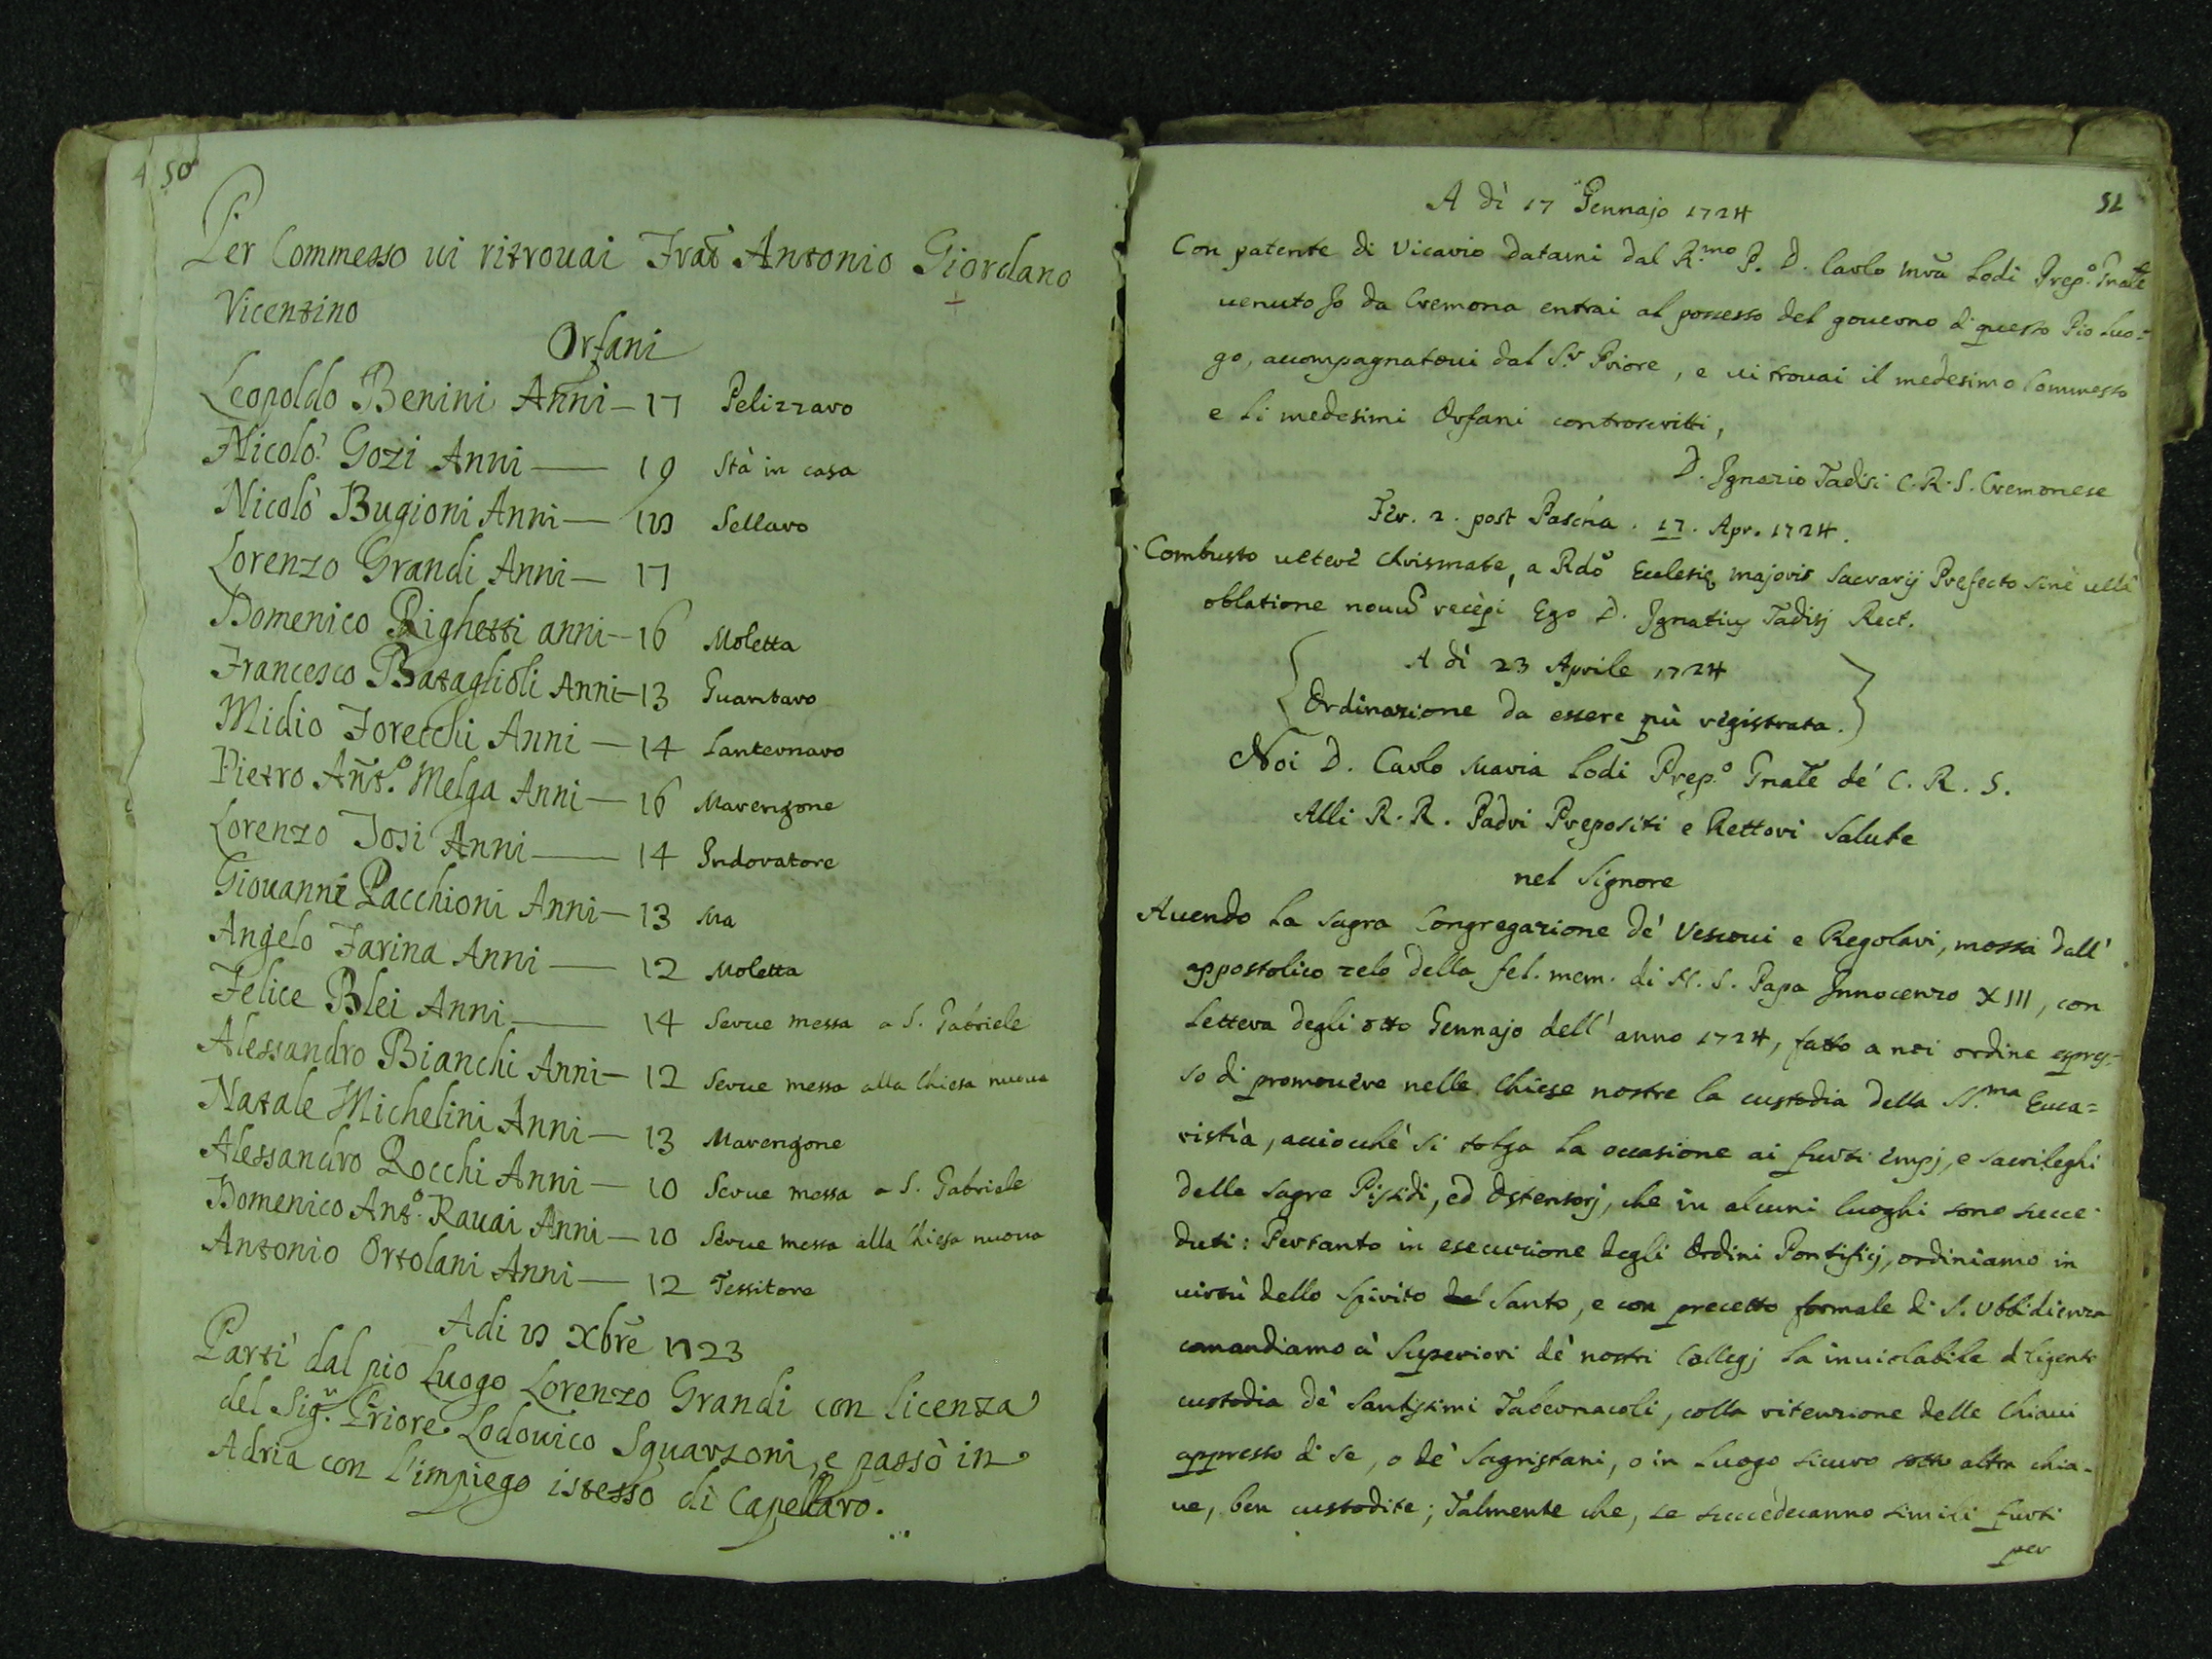 50
Per Commesso ui ritrouai Frat Antonio Giordano
Vicentino
Orfani
Leopoldo Benini Anni — 17 Pelizzaro
Nicolò Gozi Anni — 19 Stà in casa
Nicolò Bugioni Anni — Sellaro
Lorenzo Grandi Anni — 17
Domenico Righetti anni — 16 Moletta
Francesco Bataglioli Anni — 13 Guantaro
Midio Forecchi Anni — 14 Lanternaro
Pietro Ant.º Melga Anni — 16 Marengone
Lorenzo Josi Anni — 14 Indoratore
Giouanni Pacchioni Anni — 13
Angelo Farina Anni — 12 Moletta
Felice Blei Anni — 14 Serue messa a S. Gabriele
Alessandro Bianchi Anni — 12 Serue messa alla Chiesa nuoua
Natale Michelini Anni — 13 Marengone
Alessandro Rocchi Anni — 10 Serue messa a S. Gabriele
Domenico Ant.º Rauai Anni — 10 Serue messa alla Chiesa nuoua
Antonio Ortolani Anni — 12 Tessitore
Adi xbre 1723
Partì dal pio Luogo Lorenzo Grandi con licenza
del Sig.r Priore Lodouico Sguarzoni, e passò in
Adria con l'impiego istesso di Capellaro.
51
A dì 17 Gennajo 1724
Con patente di Vicario datami dal R.mo P. D. Carlo Mra Lodi Prep.º Gnale
uenuto Jo da Cremona entrai al possesso del gouerno di questo Pio Luo=
go, accompagnatoui dal S.r Priore, e ui trouai il medesimo Commesso
e li medesimi Orfani controscritti,
D. Ignazio Tadisi C.R.S. Cremonese
Fer. 2. post Pascha. 17. Apr. 1724.
Combusto ueteri Chrismate, a Rdo Ecclesię majoris Sacrarij Prefecto sine ulla
oblatione nouu recèpi Ego D. Ignatius Tadisj Rect.
A dì 23 Aprile 1724
Ordinazione da essere più registrata.
Noi D. Carlo Maria Lodi Prep.º Gnale de' C. R. S.
Alli R. R. Padri Prepositi e Rettori Salute
nel Signore
Auendo la Sagra Congregazione de' Vescoui e Regolari, mossa dall'
appostolico zelo della fel. mem. di N. S. Papa Innocenzo XIII, con
Lettera degli otto Gennajo dell' anno 1724, fatto a noi ordine espres-
so di promouere nelle Chiese nostre la custodia della SS.ma Euca=
ristia, acciocchè si tolga la occasione ai furti empj, e sacrileghi
delle sagre Pissidi, ed Ostensorj, che in alcuni luoghi sono succe-
duti: Pertanto in esecuzione degli Ordini Pontificij, ordiniamo in
uirtù dello Spirito Santo, e con precetto formale di S. Ubbidienza
comandiamo à Superiori de' nostri Collegj la inuiolabile diligente
custodia de' Santissimi Tabernacoli, colla ritenzione delle Chiaui
appresso di se, o de' Sagristani, o in Luogo sicuro sotto altra chia-
ue, ben custodite; Talmente che, se succederanno simili furti
per